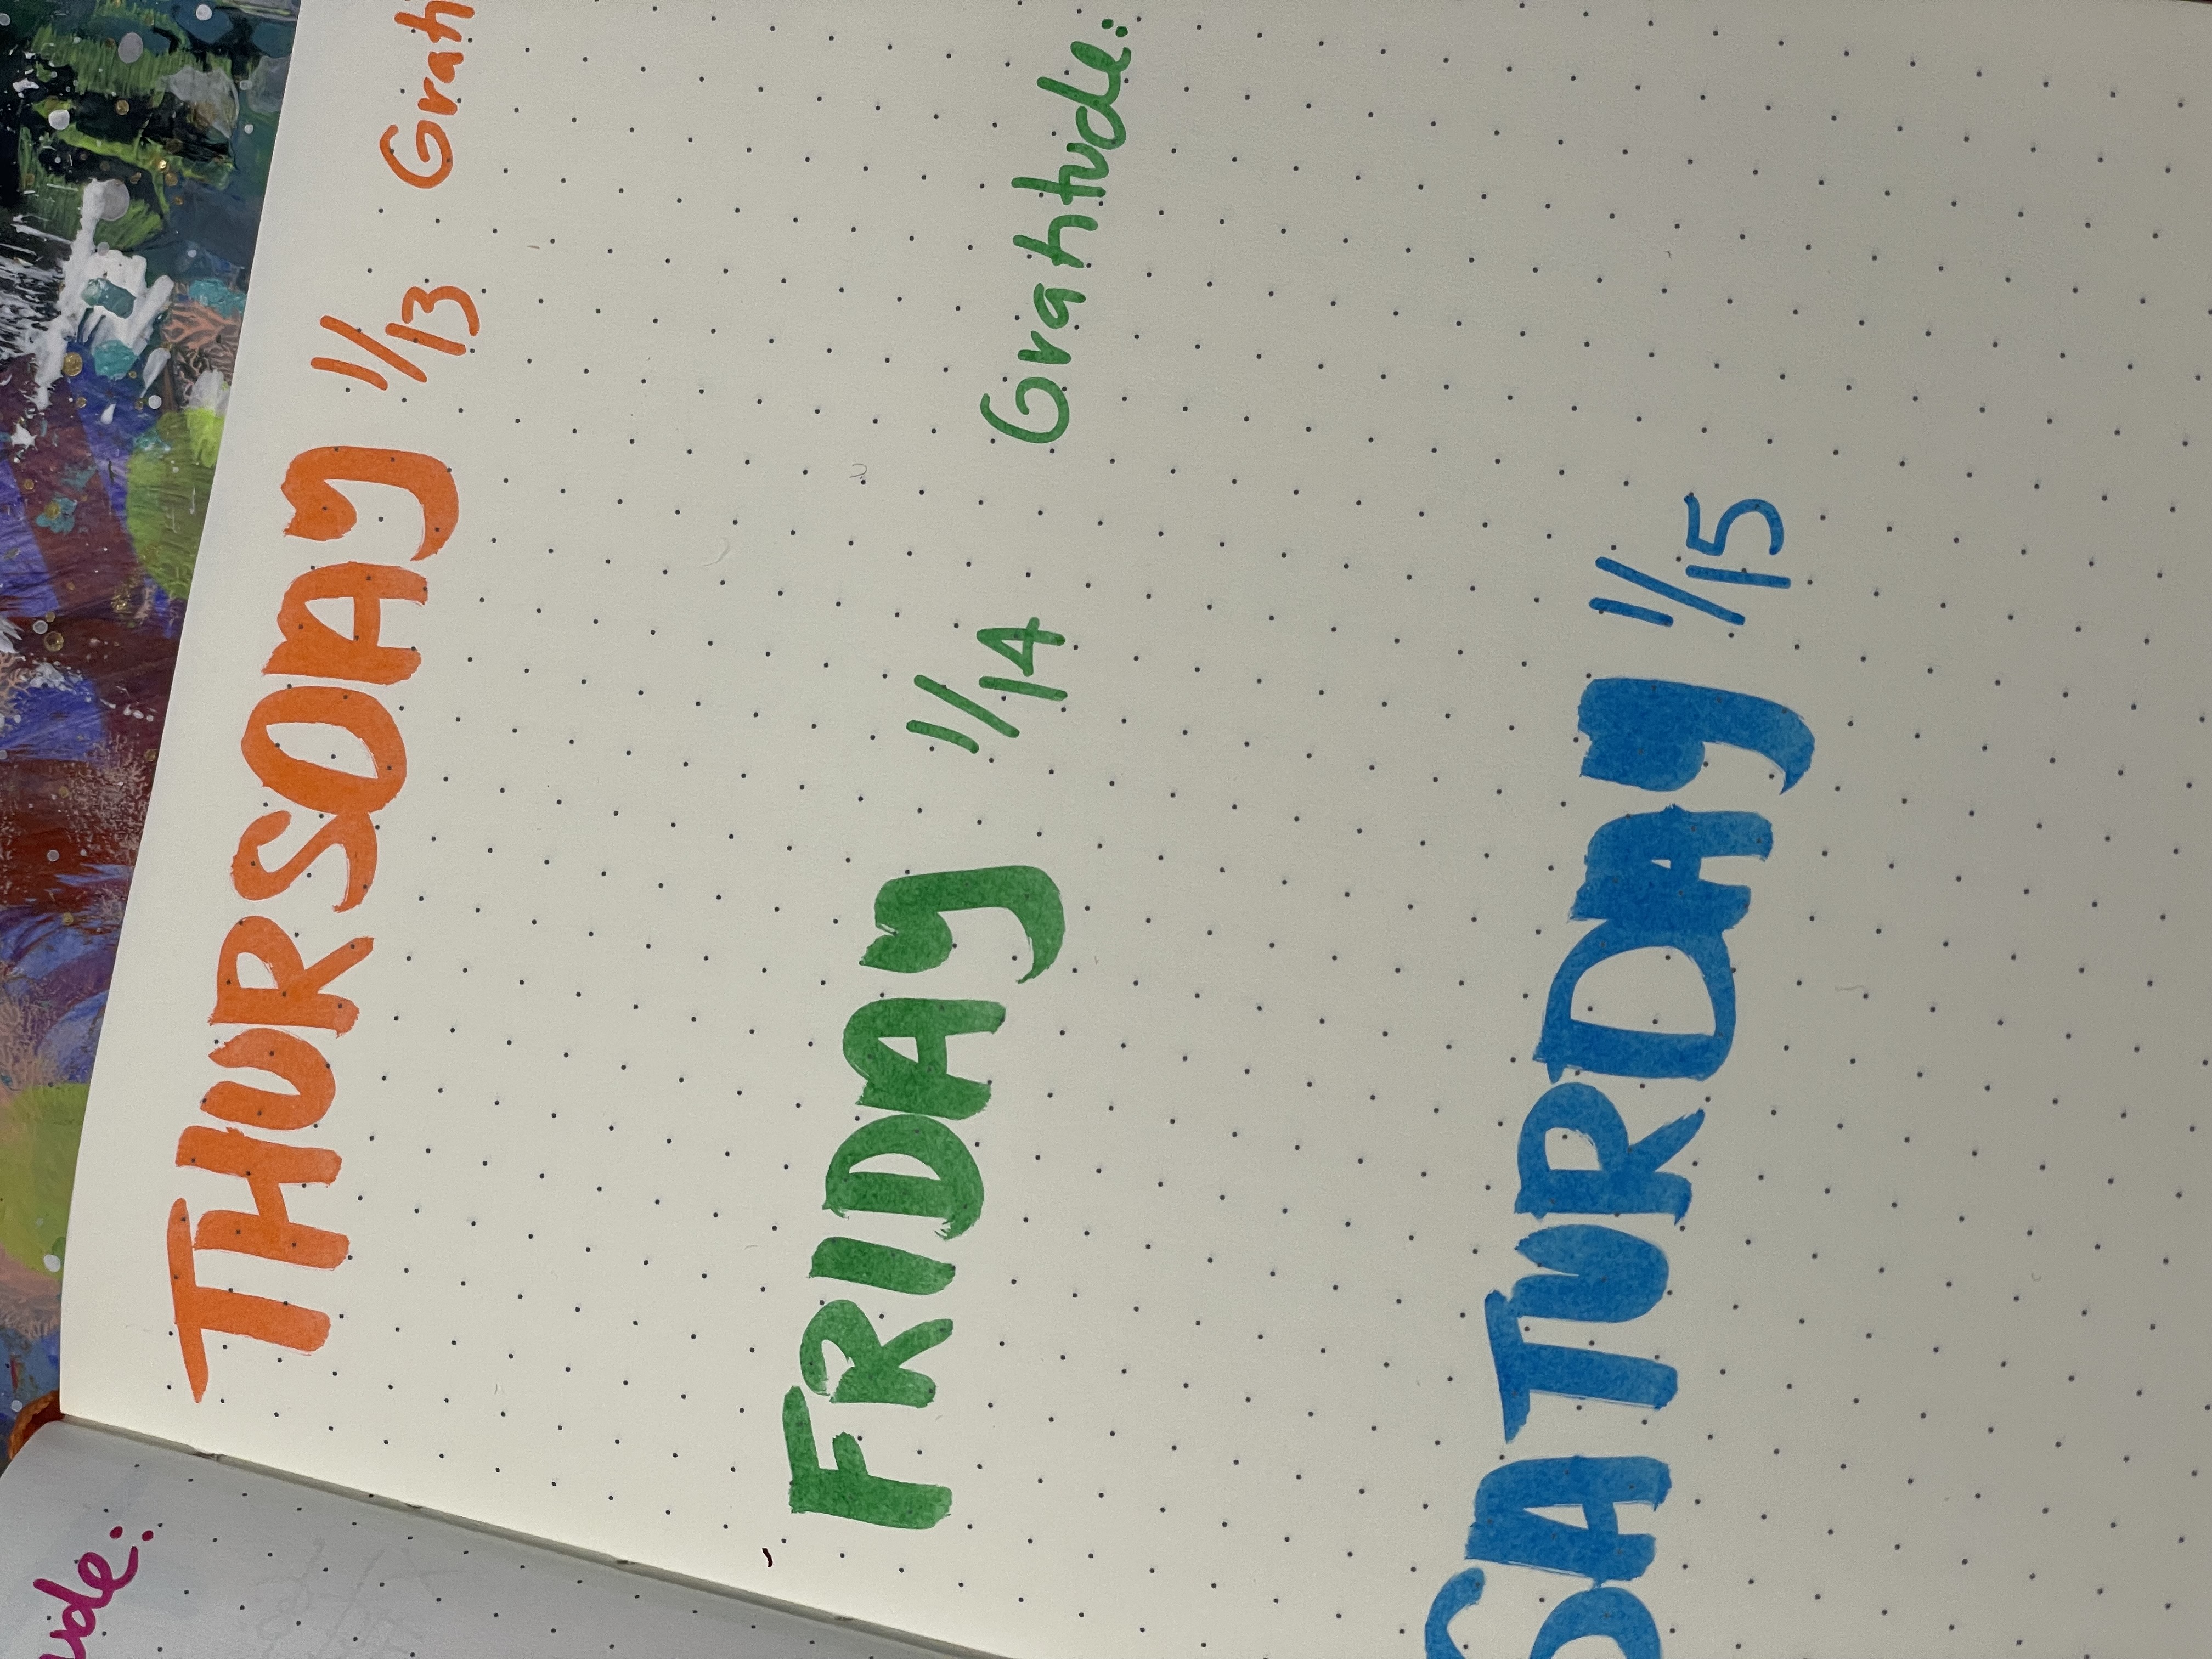 ude:
THURSDAY 1/13 Grati
FRIDAY 1/14 Gratitude:
SATURDAY 1/15